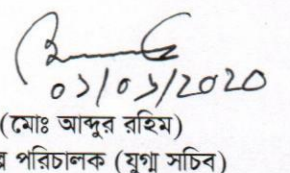 ০১/০১/2020
(মোঃ আব্দুর রহিম)
পরিচালক (যুগ্ম সচিব)